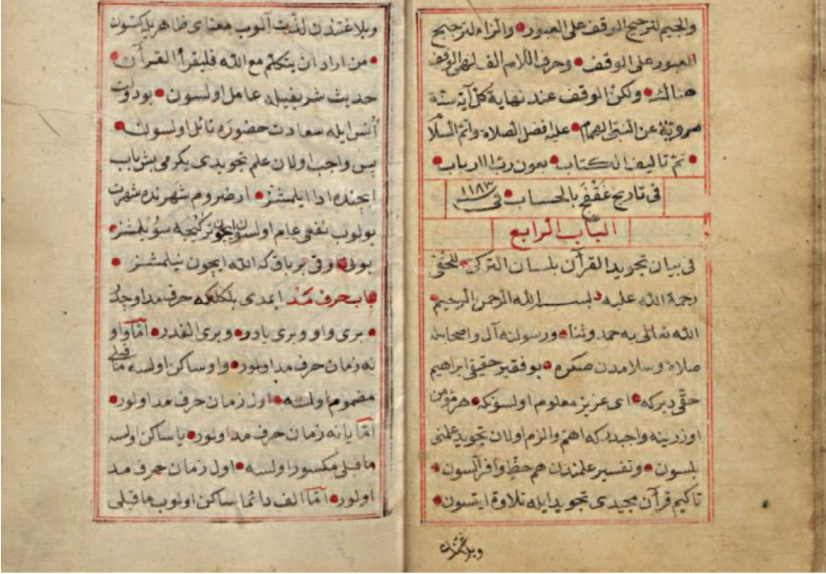 والجيم لترجيح الوقف على العبور والزاء لترجيح
العبور على الوقف وحرف اللام الف لنهى الوقف
هناك ولكن الوقف عند نهاية كل آية سنة
مروية عن النبى الهمام عليه افضل الصلاة واتم السلام
تم تاليف الكتاب بعون رب الارباب
فى تاريخ غقفج بالحساب فى ١١٨٣
الباب الرابع
فى بيان تجويد القرآن بلسان التركى للحقى
رحمة الله عليه بسم الله الرحمن الرحيم
الله تعالى يه حمد وثنا ورسولنه آل واصحابنه
صلاة وسلامدن صكره بو فقير حقيقى ابراهيم
حقى ديركه اى عزيز معلوم اولسونكه هر مؤمن
اوزرينه واجبدركه اهم والزم اولان تجويد علمنى
بلسون وتفسير علمندن هم حظ وافر آلسون
تاكيم قرآن مجيدى تجويد ايله تلاوة ايتسون
وبلاغتندن
وبلاغتندن لذت آلوب معناى ظاهر بلكتسون
من اراد ان يتكلم مع الله فليقرأ القرآن
حديث شريفيله عامل اولسون بو دولت
انس ايله سعادت حضوره نائل اولسون
پس واجب اولان علم تجويدى يكرمى بش باب
ايچنده ادا ايلمشز ارضروم شهرنده شهرت
بولوب نفعى عام اولسون ايچون تركيجه سويلمشز
بونى اوقى براق كه الله ايچون نيلمشز
باب حرف مد ايمدى بلكلكه حرف مد اوچدر
برى واو وبرى يادر وبرى الفدر اما واو
نه زمان حرف مد اولور واو ساكن اولسه ما قبلى
مضموم اولسه اول زمان حرف مد اولور
اما يا نه زمان حرف مد اولور يا ساكن اولسه
ما قبلى مكسور اولسه اول زمان حرف مد
اولور اما الف دائما ساكن اولوب ما قبلى